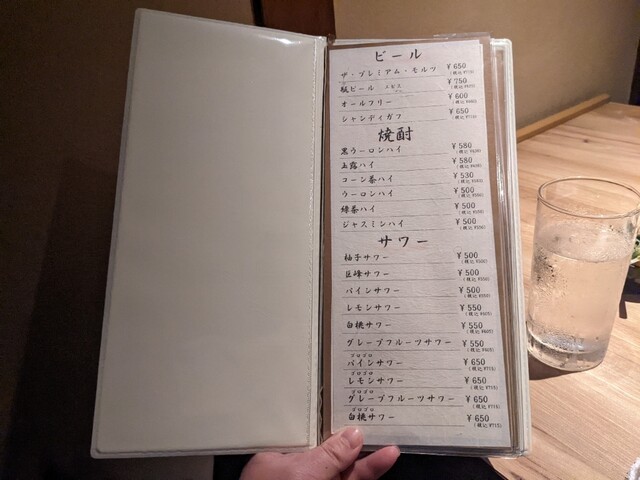 ビール
ザ・プレミアム・モルツ ¥650 (税込¥715)
瓶ビール エビス ¥750 (税込¥825)
オールフリー ¥600 (税込¥660)
シャンディガフ ¥650 (税込¥715)
焼酎
黒ウーロンハイ ¥580 (税込¥638)
玉露ハイ ¥580 (税込¥638)
コーン茶ハイ ¥530 (税込¥583)
ウーロンハイ ¥500 (税込¥550)
緑茶ハイ ¥500 (税込¥550)
ジャスミンハイ ¥500 (税込¥550)
サワー
柚子サワー ¥500 (税込¥550)
巨峰サワー ¥500 (税込¥550)
パインサワー ¥500 (税込¥550)
レモンサワー ¥550 (税込¥605)
白桃サワー ¥550 (税込¥605)
グレープフルーツサワー ¥550 (税込¥605)
ゴロゴロ
パインサワー ¥650 (税込¥715)
ゴロゴロ
レモンサワー ¥650 (税込¥715)
ゴロゴロ
グレープフルーツサワー ¥650 (税込¥715)
ゴロゴロ
白桃サワー ¥650 (税込¥715)